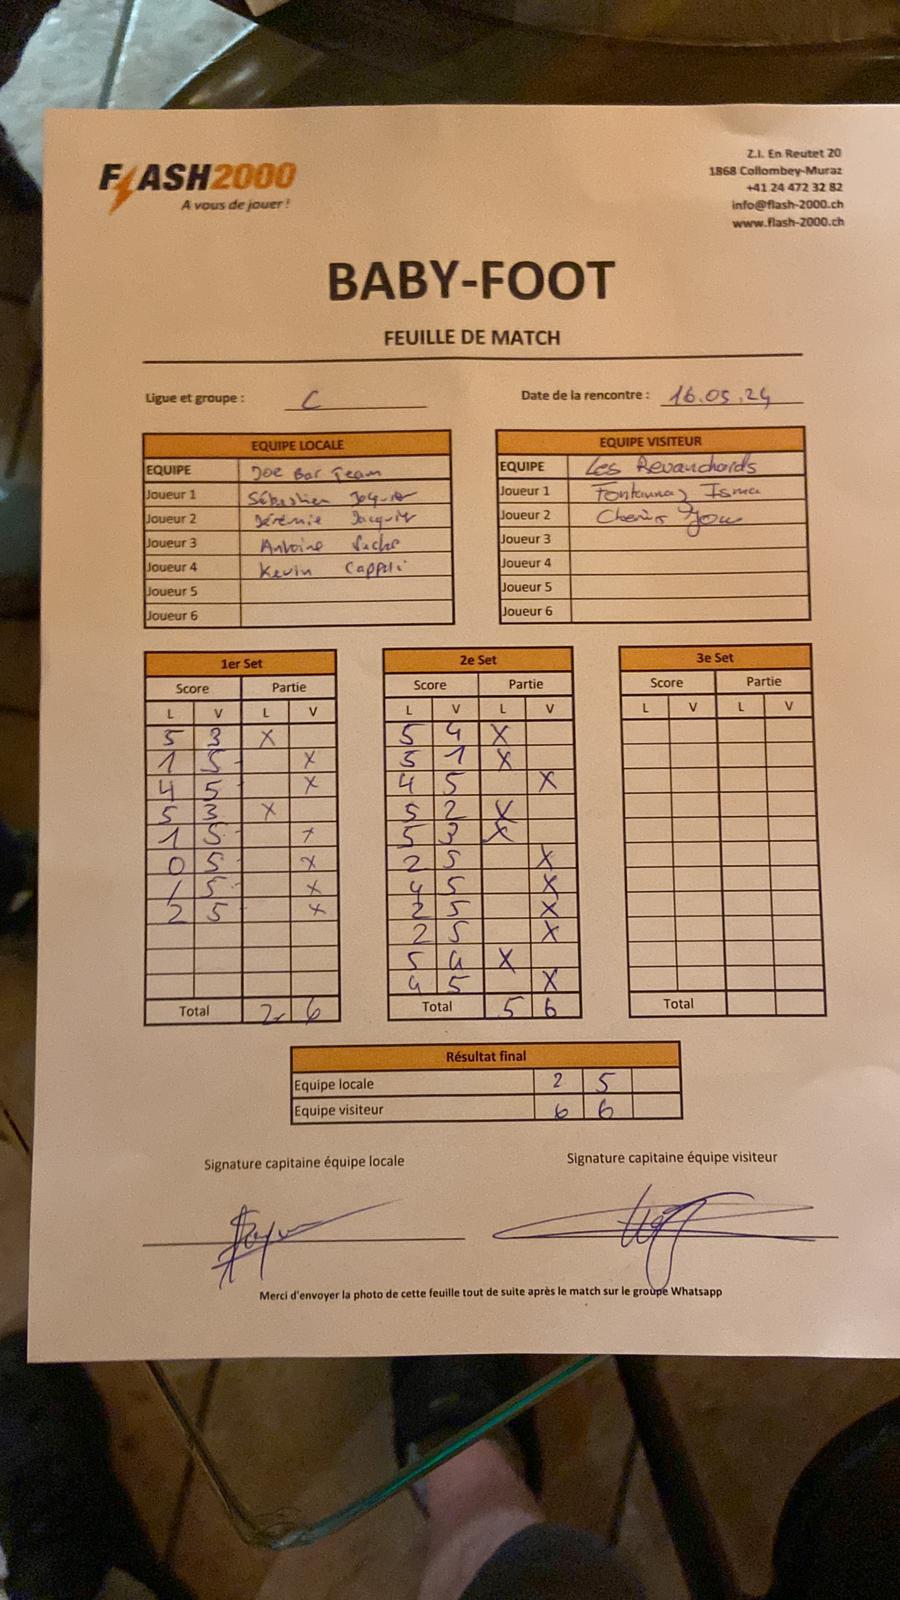 FLASH2000
A vous de jouer !
Z.I. En Reutet 20
1868 Collombey-Muraz
+41 24 472 32 82
info@flash-2000.ch
www.flash-2000.ch
BABY-FOOT
FEUILLE DE MATCH
Ligue et groupe : C
Date de la rencontre : 16.05.24
EQUIPE LOCALE
EQUIPE Joe Bar Team
Joueur 1 Sébastien
Joueur 2 Jérémie Jacquier
Joueur 3 Antoine
Joueur 4 Kevin
Joueur 5
Joueur 6
EQUIPE VISITEUR
EQUIPE Les Revanchards
Joueur 1 Isma
Joueur 2
Joueur 3
Joueur 4
Joueur 5
Joueur 6
1er Set
Score Partie
L V L V
5 3 X
1 5 X
4 5 X
5 3 X
1 5 X
0 5 X
1 5 X
2 5 X
Total 2 6
2e Set
Score Partie
L V L V
5 4 X
5 1 X
4 5 X
5 2 X
5 3 X
2 5 X
4 5 X
2 5 X
2 5 X
5 4 X
4 5 X
Total 5 6
3e Set
Score Partie
L V L V
Total
Résultat final
Equipe locale 2 5
Equipe visiteur 6 6
Signature capitaine équipe locale
Signature capitaine équipe visiteur
Merci d'envoyer la photo de cette feuille tout de suite après le match sur le groupe Whatsapp